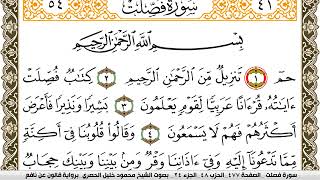 ٥٤ سُورَةُ فُصِّلَتْ ٤١
بِسْمِ اللَّهِ الرَّحْمَٰنِ الرَّحِيمِ
حمٓ ١ تَنزِيلٌ مِّنَ الرَّحْمَٰنِ الرَّحِيمِ ٢ كِتَٰبٌ فُصِّلَتْ
ءَايَٰتُهُۥ قُرْءَانًا عَرَبِيًّا لِّقَوْمٍ يَعْلَمُونَ ٣ بَشِيرًا وَنَذِيرًا فَأَعْرَضَ
أَكْثَرُهُمْ فَهُمْ لَا يَسْمَعُونَ ٤ وَقَالُوا۟ قُلُوبُنَا فِىٓ أَكِنَّةٍ
مِّمَّا تَدْعُونَآ إِلَيْهِ وَفِىٓ ءَاذَانِنَا وَقْرٌ وَمِنۢ بَيْنِنَا وَبَيْنِكَ حِجَابٌ
سورة فصلت - الصفحة ٤٧٧ الحزب ٤٨ الجزء ٢٤ بصوت الشيخ محمود خليل الحصري برواية قالون عن نافع